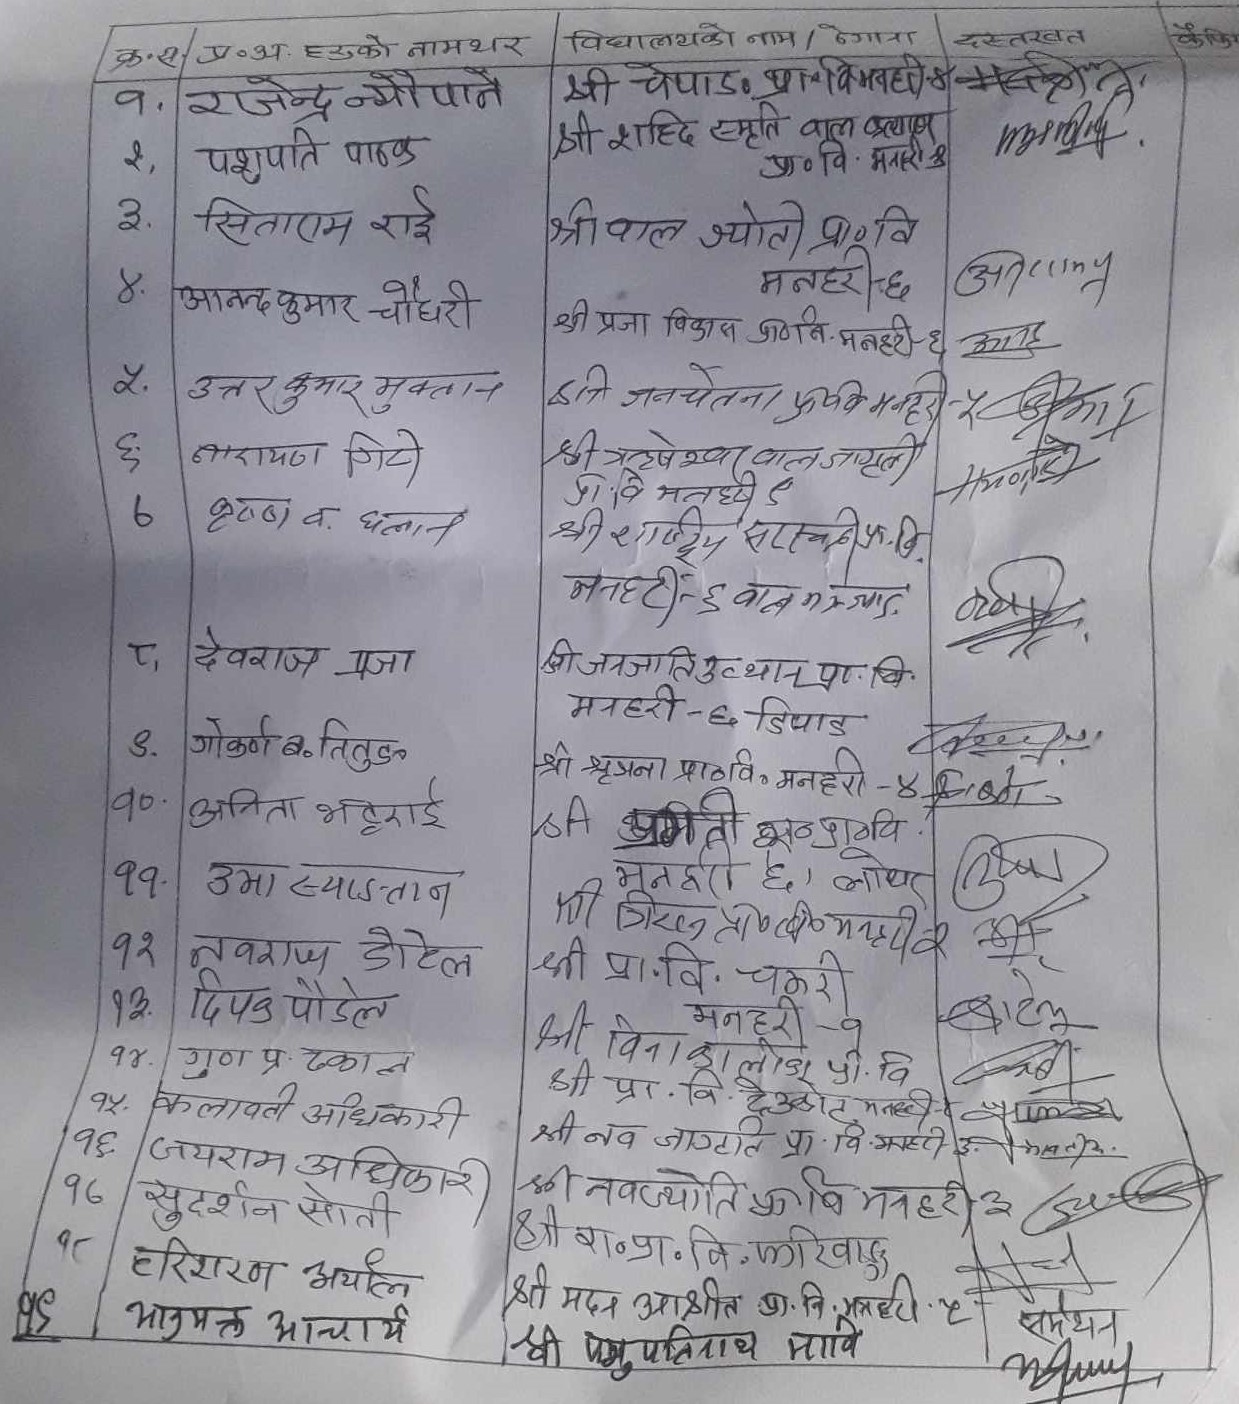 क्र.सं. प्र.अ. हरुको नामथर विद्यालयको नाम / ठेगाना दस्तखत कैफि
१. राजेन्द्र न्यौपाने श्री चेपाङ प्रा॰वि मनहरी-४
२. पशुपति पाठक श्री शहिद स्मृति वाल कल्याण
प्रा॰वि. मनहरी
३. सिताराम राई श्री वाल ज्योती प्रा॰वि
मनहरी-६
४. आनन्द कुमार चौधरी श्री प्रजा विकास प्रा॰वि. मनहरी-६
५. उत्तर कुमार मुक्तान श्री जनचेतना प्रा॰वि मनहरी-५
६. नारायण गिरी श्री वाल जागृती
प्रा.वि मनहरी ९
७ कृष्ण व. घलान श्री राष्ट्रिय सरस्वती प्रा.वि.
मनहरी-९
८. देवराज प्रजा श्री जनजाति उत्थान प्रा.वि.
मनहरी-६ डिपाड
९. गोकर्ण व. तितुङ श्री श्रृजना प्रा॰वि॰ मनहरी-४
१०. अनिता भट्टराई श्री प्रगती प्रा॰वि.
मनहरी ६, लोथर
११. उमा स्याङतान श्री प्रा॰वि॰ मनहरी २
१२ नवराज डोटेल श्री प्रा.वि. चकरी
मनहरी-१
१३. दिपक पौडेल श्री प्रा.वि
१४. गुण प्र. ढकाल श्री प्रा.वि. देउकोट मनहरी-
१५. कलावती अधिकारी श्री नव जागृति प्रा.वि. मनहरी
१६ जयराम अधिकारी श्री नवज्योति प्रा॰वि मनहरी ३
१७ सुदर्शन सोती श्री वा.प्रा.वि.
१८ हरिशरण अर्याल श्री मदन आश्रीत प्रा.वि. मनहरी-५
१९ भानुभक्त आचार्य श्री पशुपतिनाथ मावि समर्थन